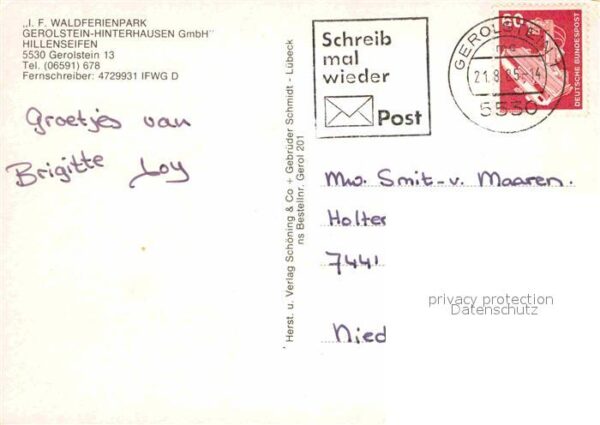 "I. F. WALDFERIENPARK
GEROLSTEIN-HINTERHAUSEN GmbH"
HILLENSEIFEN
5530 Gerolstein 13
Tel. (06591) 678
Fernschreiber: 4729931 IFWG D
Groetjes van
Brigitte Loy
Herst. u. Verlag Schöning & Co + Gebrüder Schmidt - Lübeck
ns Bestellnr. Gerol 201
Schreib
mal
wieder
Post
GEROLSTEIN 1
21.8.85-14
5530
60
DEUTSCHE BUNDESPOST
Mw. Smit-v. Maaren.
Holter
7441
Nied
privacy protection
Datenschutz